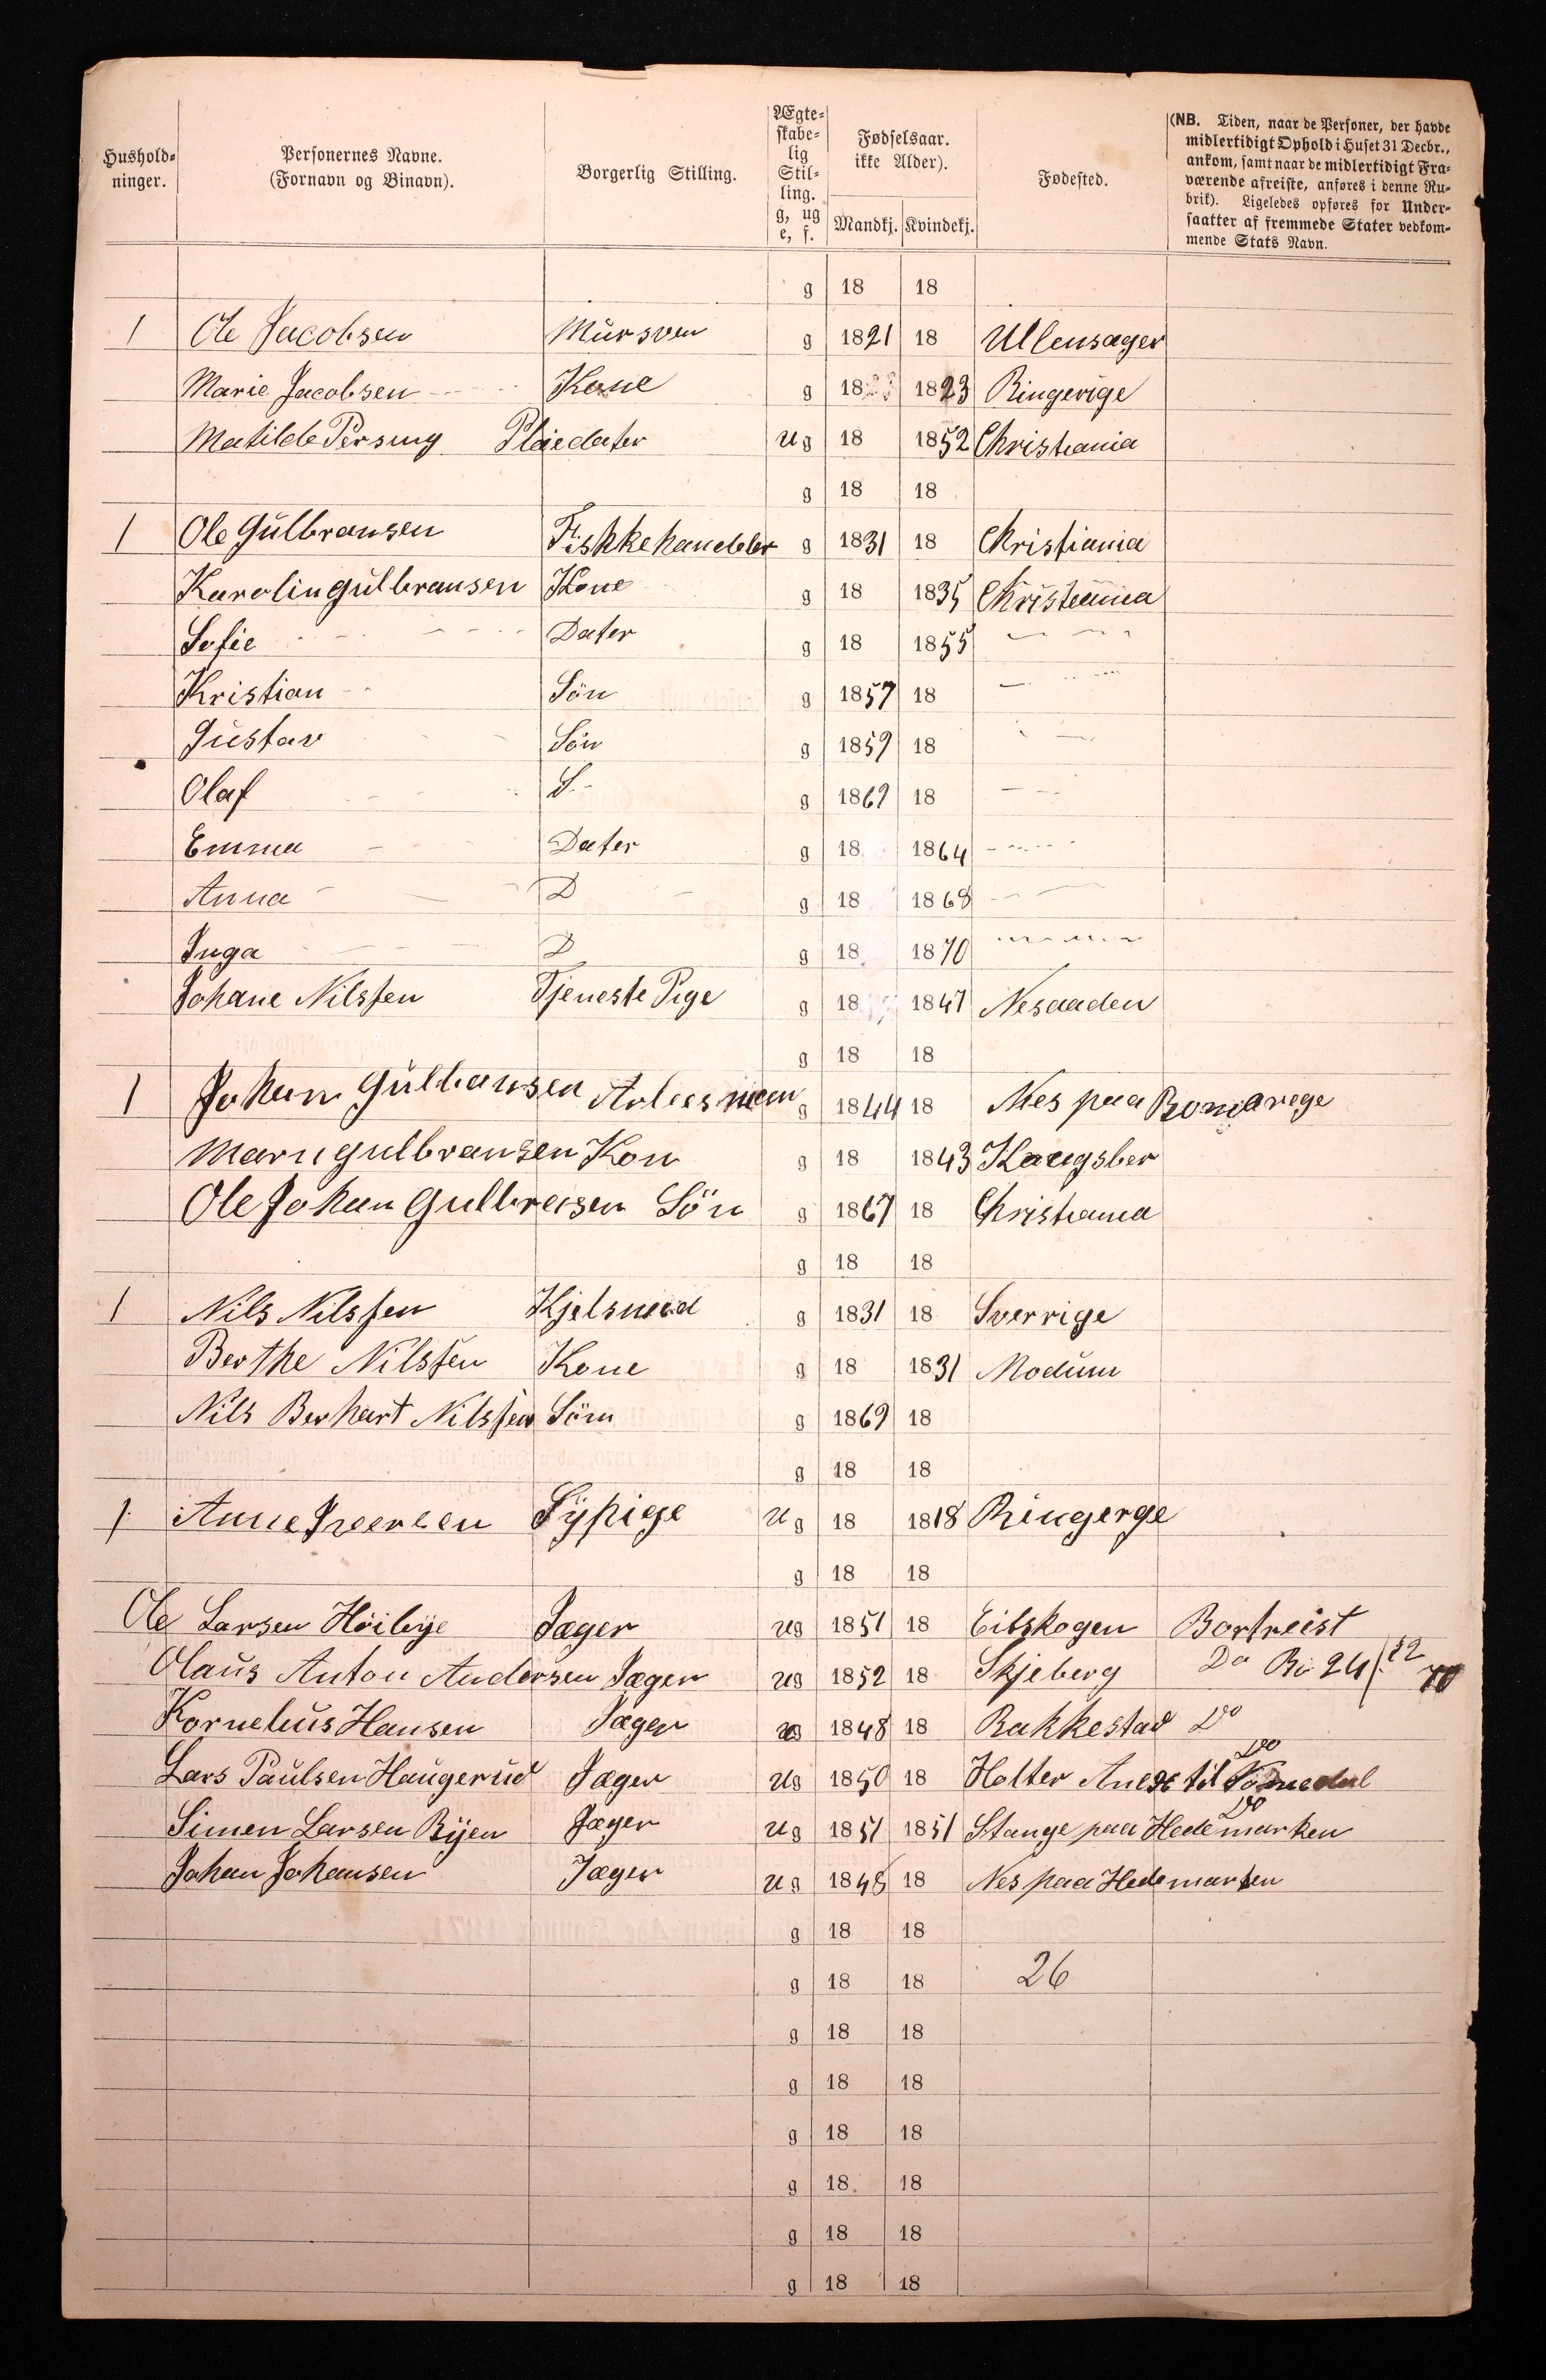 Hushold-
ninger.
Personernes Navne.
(Fornavn og Binavn).
Borgerlig Stilling.
Ægte-
skabe-
lig
Stil-
ling.
g, ug
e, f.
Fødselsaar.
ikke Alder).
Mandkj. Kvindekj.
Fødested.
(NB. Tiden, naar de Personer, der havde
midlertidigt Ophold i Huset 31 Decbr.,
ankom, samt naar de midlertidigt Fra-
værende afreiste, anføres i denne Ru-
brik). Ligeledes opføres for Under-
saatter af fremmede Stater vedkom-
mende Stats Navn.
g 18 18
1 Ole Jacobsen Mursven g 1821 18 Ullensager
Marie Jacobsen Kone g 18 1823 Ringerige
Matilde Persung Pleiedater ug 18 1852 Christiania
g 18 18
1 Ole Gulbransen Fiskkehandeler g 1831 18 Christiania
Karolin Gulbransen Kone g 18 1835 Christiania
Sofie - - - Dater g 18 1855 - -
Kristian - - Sön g 1857 18 - -
Gustav - - Sön g 1859 18 - -
Olaf - - S - g 1869 18 - -
Emma - Dater g 18 1864 - -
Anna - - - D - g 18 1868 - -
Inga - - - D g 18 1870 - -
Johane Nilssen Tjeneste Pige g 18 1847 Nesaaden
g 18 18
1 Johan Gulbansen Arbesman g 1844 18 Nes paa Romarege
Marn Gulbransen Kon g 18 1843 Kaugsber
Ole Johan Gulbrasen Sön g 1867 18 Christiania
g 18 18
1 Nils Nilssen Kjelsmed g 1831 18 Sverrige
Berthe Nilssen Kone g 18 1831 Modum
Nils Berhart Nilssen Sön g 1869 18
g 18 18
1 Anne Iversen Sypige ug 18 1818 Ringerge
g 18 18
Ole Larsen Höibye Jæger ug 1851 18 Eidskogen Bortreist
Olaus Anton Andersen Jæger ug 1852 18 Skjeberg Do 24/12 70
Kornelius Hansen Jæger ug 1848 18 Rakkestad Do
Lars Paulsen Haugerud Jæger ug 1850 18 Holter til Do
Simen Larsen Byen Jæger ug 1851 1851 Stange paa Hedemarken Do
Johan Johansen Jæger ug 1848 18 Nes paa Hedemarken
g 18 18
g 18 18 26
g 18 18
g 18 18
g 18 18
g 18 18
g 18 18
g 18 18